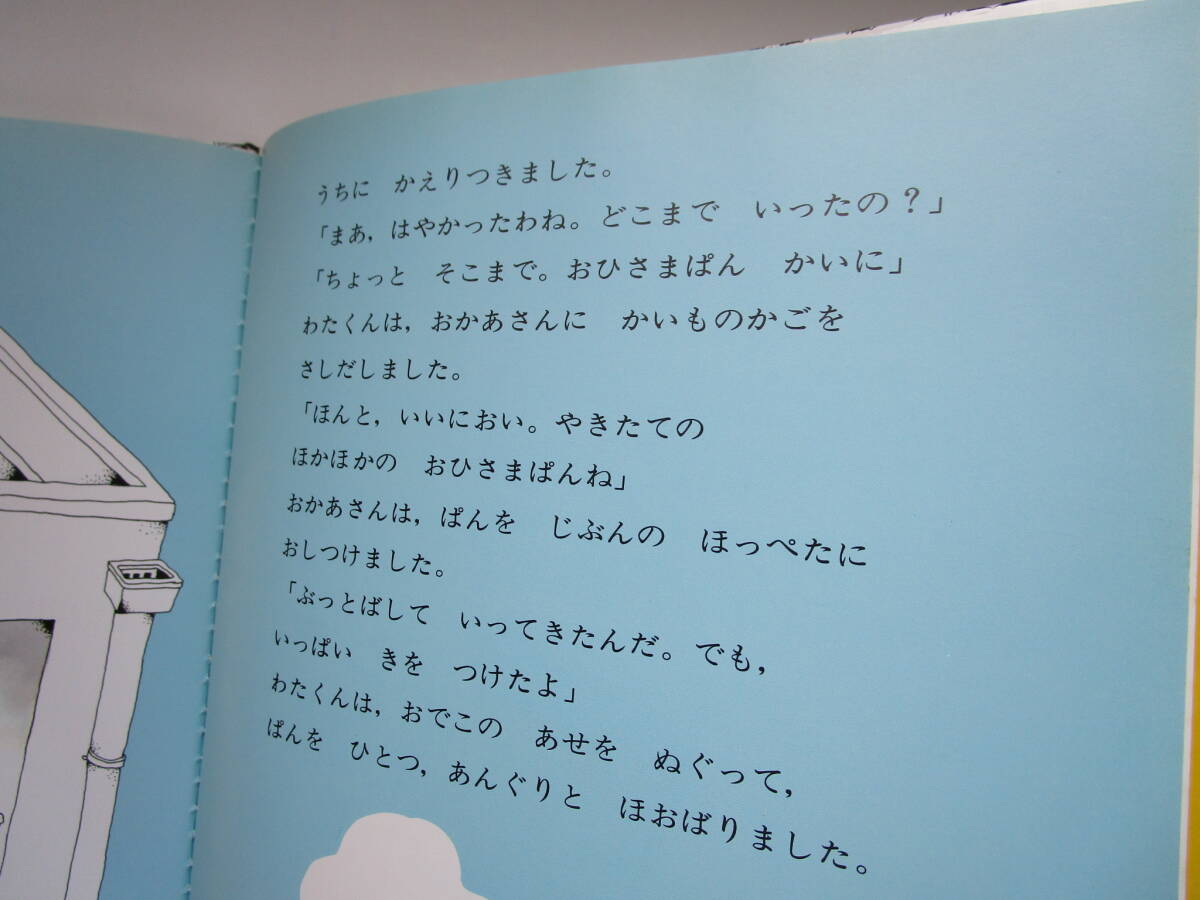 うちに　かえりつきました。
「まあ，はやかったわね。どこまで　いったの？」
「ちょっと　そこまで。おひさまぱん　かいに」
わたくんは，おかあさんに　かいものかごを
さしだしました。
「ほんと，いいにおい。やきたての
ほかほかの　おひさまぱんね」
おかあさんは，ぱんを　じぶんの　ほっぺたに
おしつけました。
「ぶっとばして　いってきたんだ。でも，
いっぱい　きを　つけたよ」
わたくんは，おでこの　あせを　ぬぐって，
ぱんを　ひとつ，あんぐりと　ほおばりました。